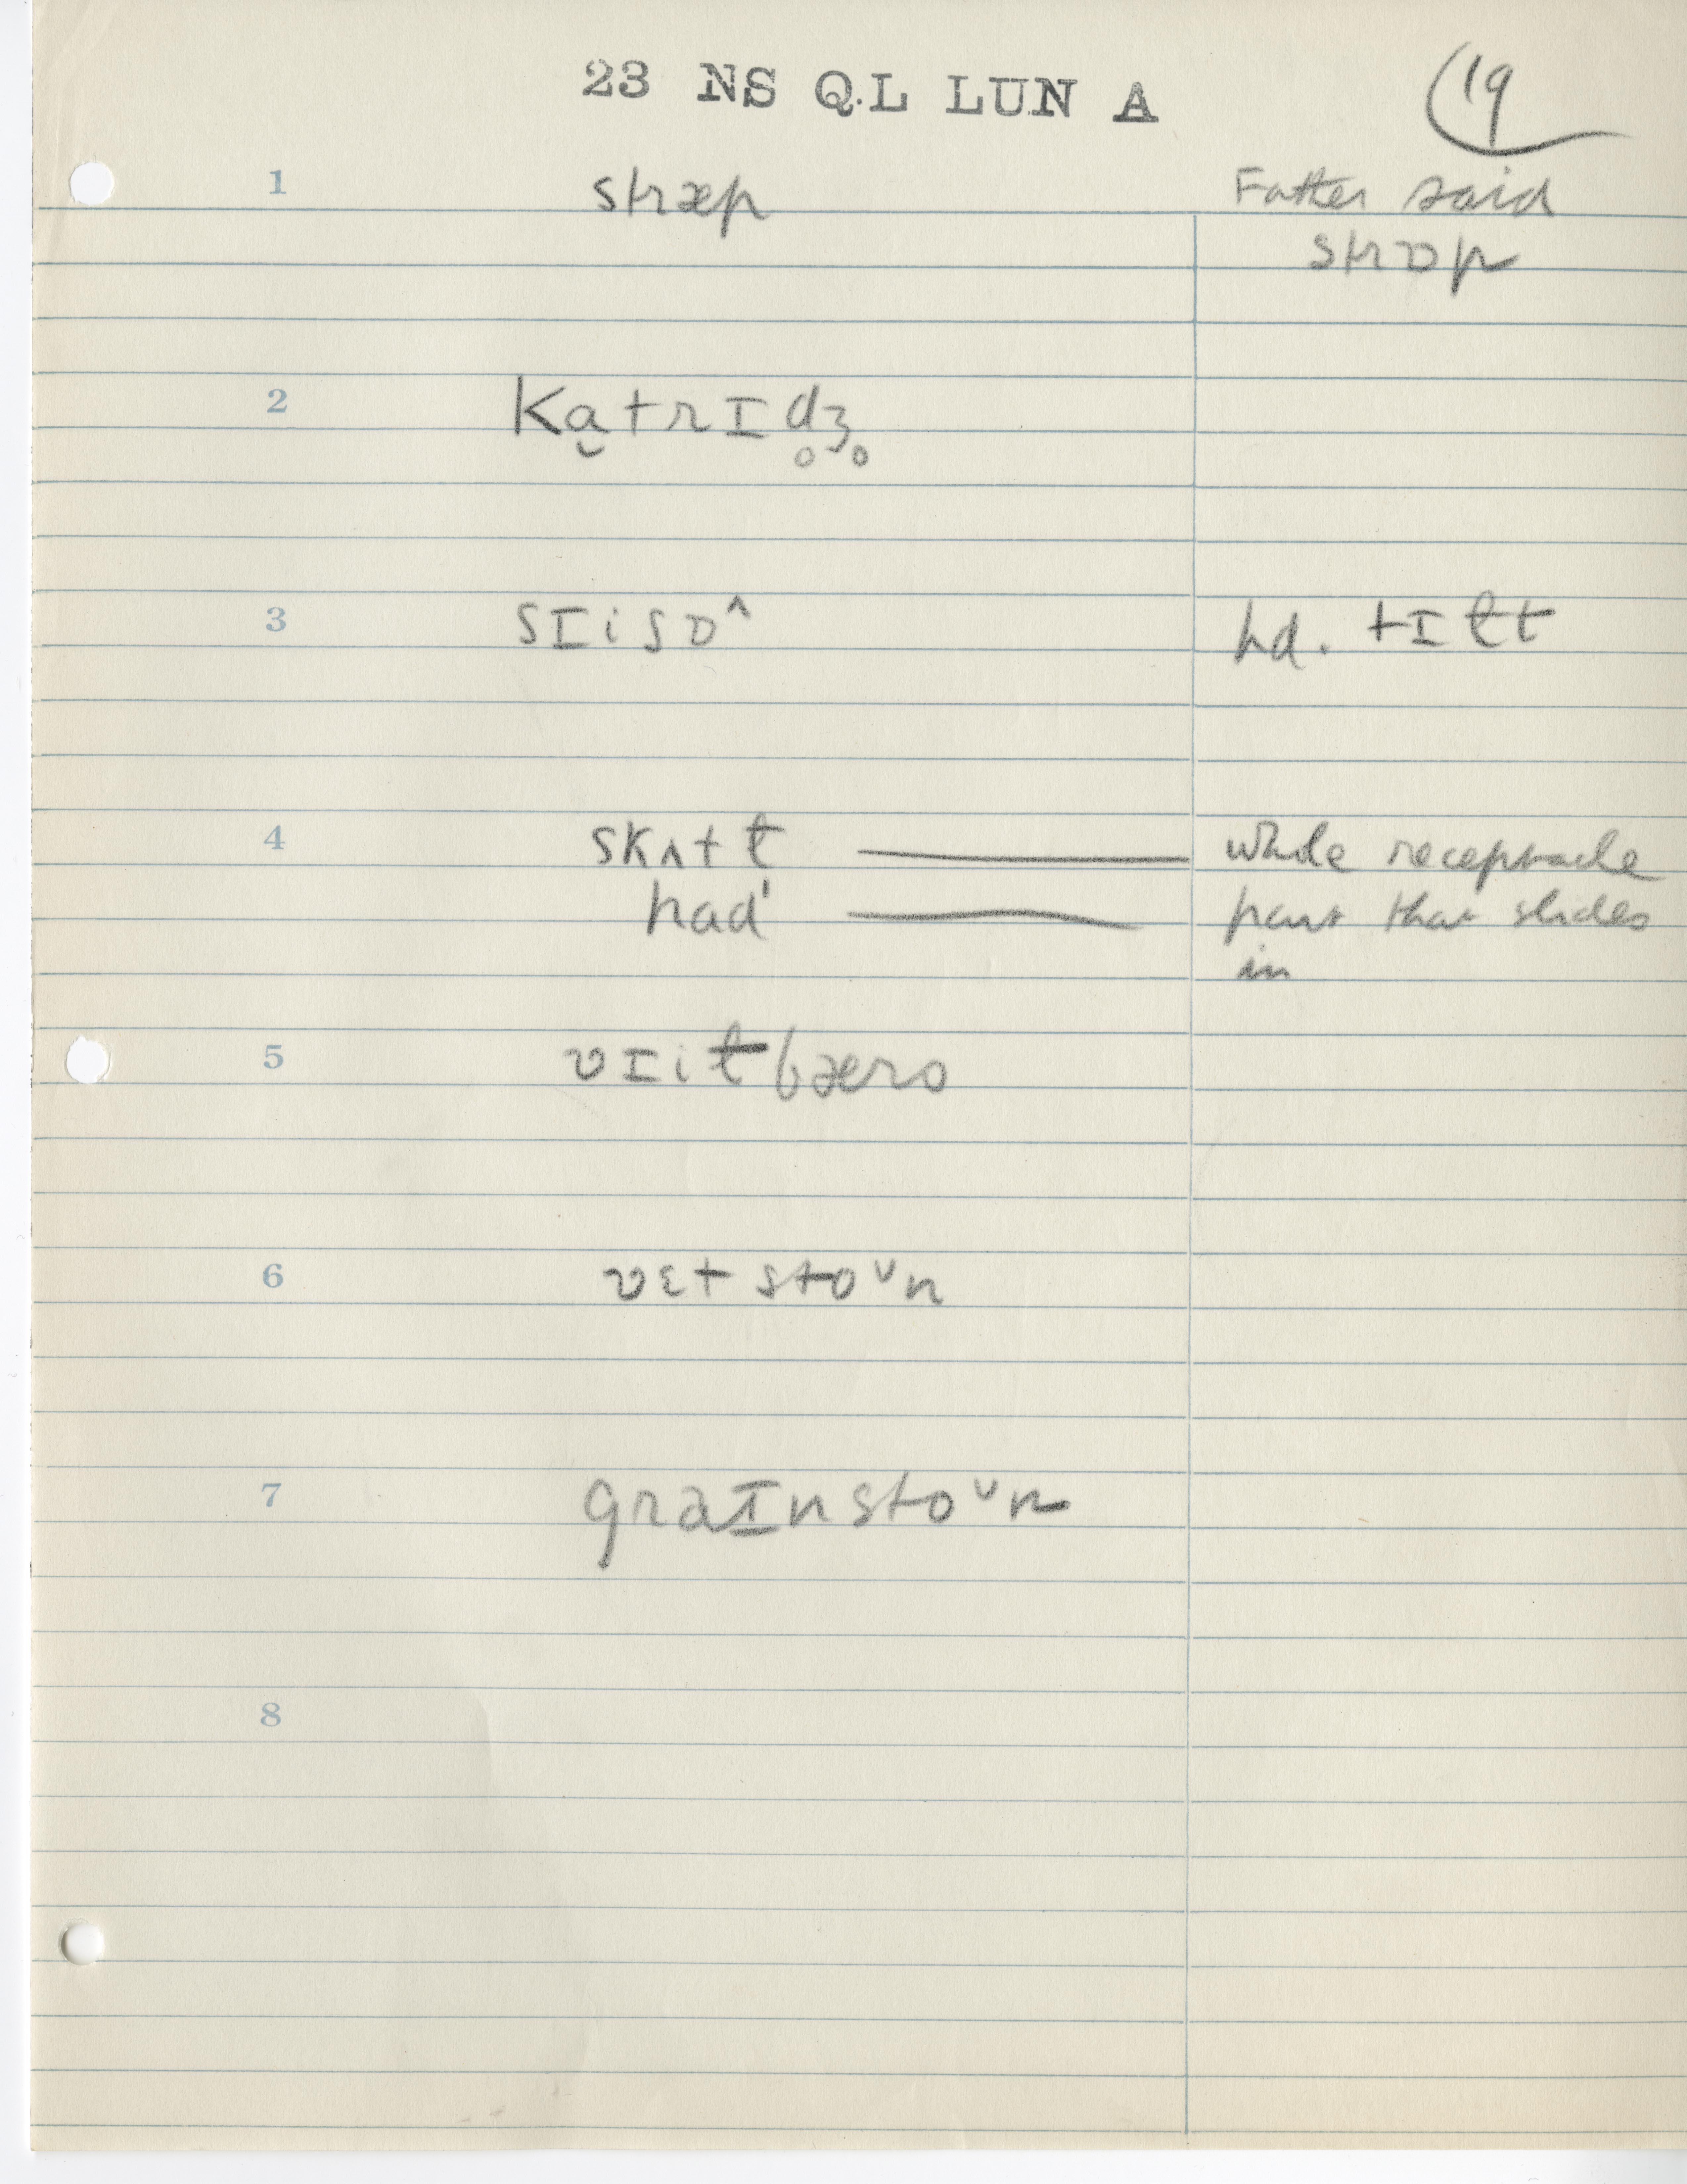 23 NS QL LUN A
19
1 stræp Father said
strɒp
2 ka̬trɪd̥ʒ̥
3 sɪisɒ^ hd. tɪɫt
4 skʌtɫ whole receptacle
had' part that slides
in
5 ʋɪiɫbæro
6 ʋɛt stoᵛn
7 graɪnstoᵛn
8